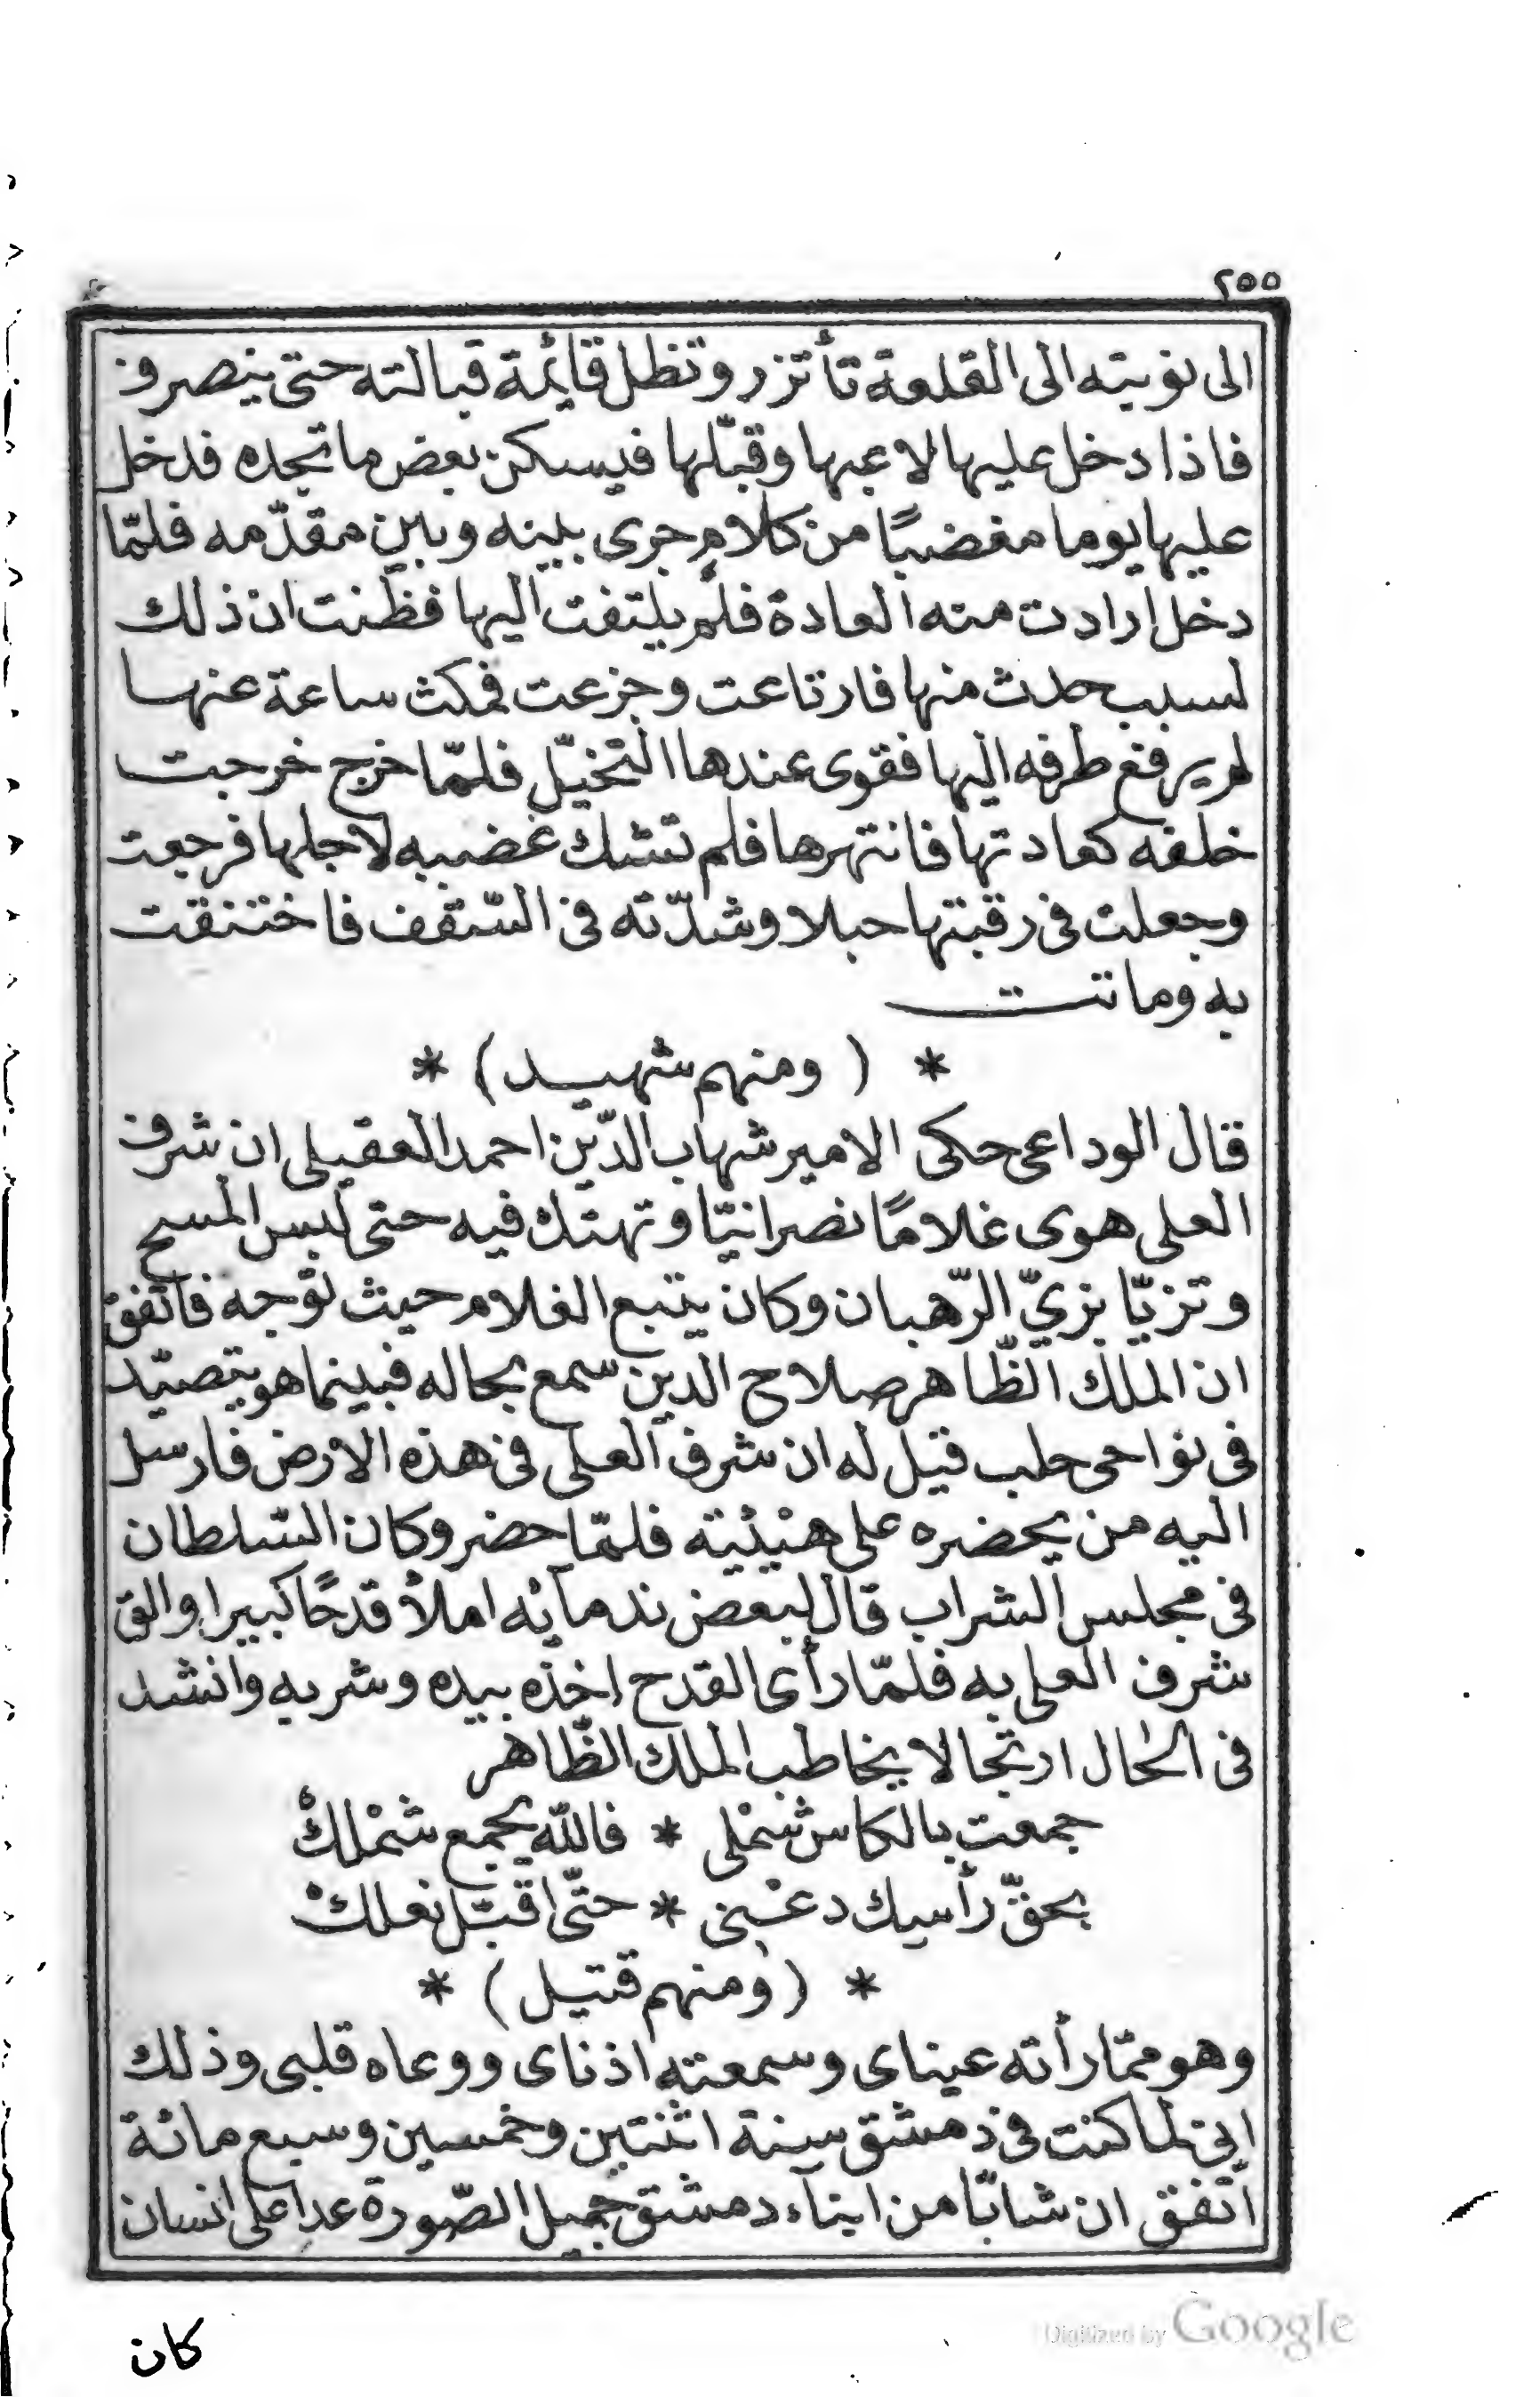 ٢٥٥
الى نوبته الى القلعة تأتزر وتظل قايمة قبالته حتى ينصرف
فاذا دخل عليها لاعبها وقبّلها فيسكن بعض ما تجده فدخل
عليها يوما مغضبًا من كلام جرى بينه وبين مقدّمه فلمّا
دخل ارادت منه العادة فلم يلتفت اليها فظنت ان ذلك
لسبب حدث منها فارتاعت وجزعت فمكث ساعة عنها
لم يرفع طرفه اليها فقوى عندها التخيّل فلمّا خرج خرجت
خلفه كعادتها فانتهرها فلم تشك غضبه لاجلها فرجعت
وجعلت فى رقبتها حبلا وشدّته فى السّقف فاختنقت
به وماتت
* ( ومنهم شهيد ) *
قال الوداعى حكى الامير شهاب الدّين احمد العقيلى ان شرف
العلى هوى غلامًا نصرانيّا وتهتك فيه حتى لبس المسح
وتزيّا بزيّ الرّهبان وكان يتبع الغلام حيث توّجه فاتفق
ان الملك الظّاهر صلاح الدين سمع بحاله فبينما هو يتصيّد
فى نواحى حلب قيل له ان شرف العلى فى هذه الارض فارسل
اليه من يحضره على هيئيته فلمّا حضر وكان السّلطان
فى مجلس الشراب قال لبعض ندمآئه املأ قدحًا كبيرا والق
شرف العلى به فلمّا رأى القدح اخذه بيده وشربه وانشد
فى الحال ارتجالا يخاطب الملك الظّاهر
جمعت بالكاس شمْلى * فاللّه يجمع شمْلكْ
بحقّ رأسك دعْنى * حتّى اقبّل نعلكْ
* ( ومنهم قتيل ) *
وهو ممّا رأته عيناى وسمعته اذناى ووعاه قلبى وذلك
انى لما كنت فى دمشق سنة اثنتين وخمسين وسبع مائة
اتّفق ان شابّا من ابناء دمشق جميل الصّورة عدا على انسان
كان
Digitized by Google